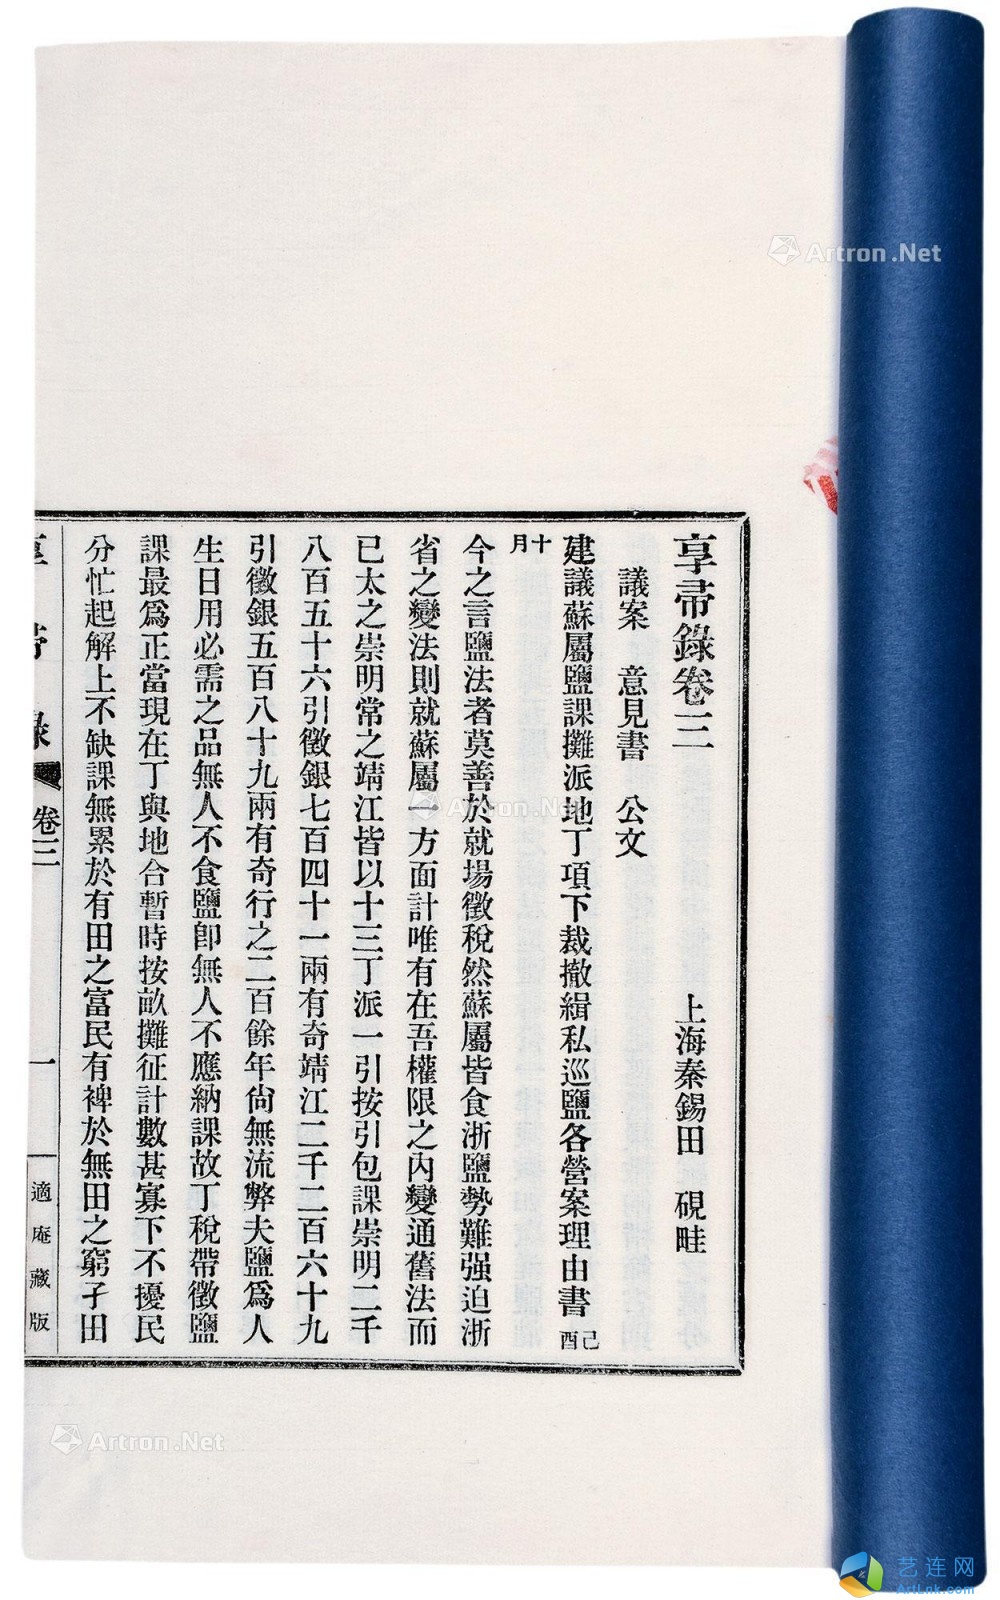 享帚錄卷三　上海秦錫田　硯畦
議案　意見書　公文
建議蘇屬鹽課攤派地丁項下裁撤緝私巡鹽各營案理由書己酉
十月
今之言鹽法者莫善於就場徵稅然蘇屬皆食浙鹽勢難强迫浙
省之變法則就蘇屬一方面計唯有在吾權限之內變通舊法而
已太之崇明常之靖江皆以十三丁派一引按引包課崇明二千
八百五十六引徵銀七百四十一兩有奇靖江二千二百六十九
引徵銀五百八十九兩有奇行之二百餘年尙無流弊夫鹽爲人
生日用必需之品無人不食鹽卽無人不應納課故丁稅帶徵鹽
課最爲正當現在丁與地合暫時按畝攤征計數甚寡下不擾民
分忙起解上不缺課無累於有田之富民有裨於無田之窮孑田
享帚錄
卷三
一
適庵藏版
Artron.Net
Artron.Net
Artron.Net
艺连网
ArtLnk.com